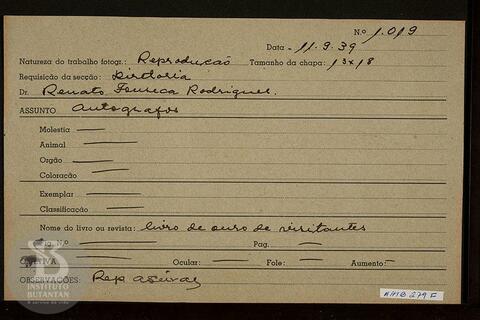 N.o 1.019
Data - 11.9.39
Natureza do trabalho fotogr.: Reprodução Tamanho da chapa: 13x18
Requisição da secção: Diretoria
Dr. Renato Fonseca Rodrigues.
ASSUNTO Autografos
Molestia
Animal
Orgão
Coloração
Exemplar
Classificação
Nome do livro ou revista: livro de ouro de visitantes
Pag.
Ocular: Fole: Aumento
OBSERVAÇÕES: Rep
INSTITUTO
BUTANTAN
A serviço da vida